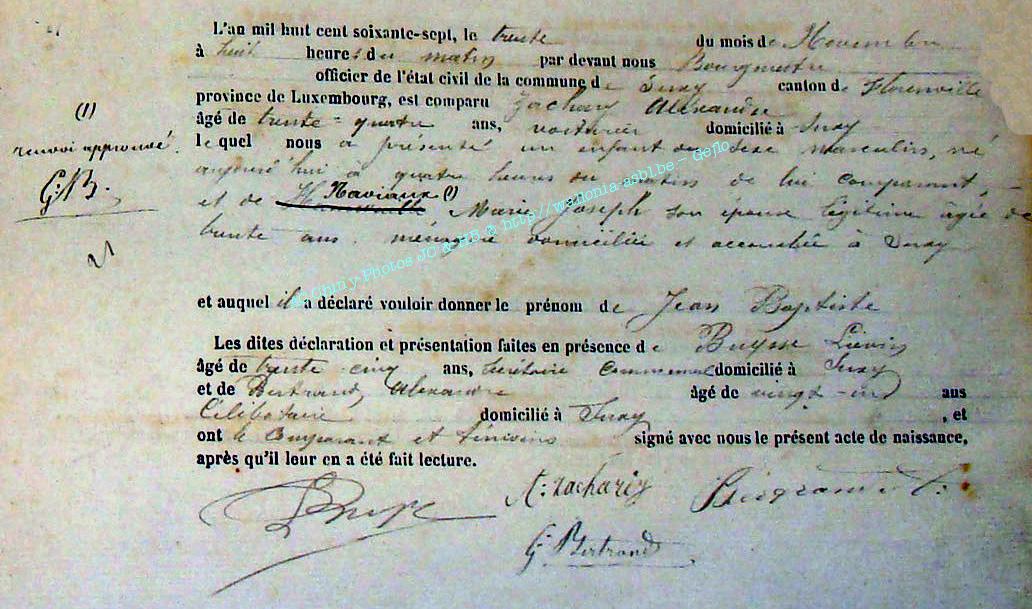 L'an mil huit cent soixante-sept, le trente du mois de Novembre
à huit heures du matin par devant nous Bourgmestre
officier de l'état civil de la commune d e Suxy canton de Florenville
province de Luxembourg, est comparu Zachary Alexandre
âgé de trente-quatre ans, voiturier domicilié à Suxy
le quel nous a présenté un enfant du sexe masculin, né
aujourd'hui à quatre heures du matin de lui comparant,
et de Naviaux (1) Marie Joseph son épouse légitime âgée de
trente ans, ménagère domiciliée et accouchée à Suxy
(1)
renvoi approuvé.
G:B.
et auquel il a déclaré vouloir donner le prénom de Jean Baptiste
Les dites déclaration et présentation faites en présence d e Buysse Liévin
âgé de trente cinq ans, Secrétaire Communal domicilié à Suxy
et de Bertrand Alexandre âgé de vingt-un ans
Célibataire domicilié à Suxy , et
ont le Comparant et témoins signé avec nous le présent acte de naissance,
après qu'il leur en a été fait lecture.
A: Zachariy
G: Bertrand
Chiny Photos JC & MB @ http://wallonia-asbl.be - Geflo